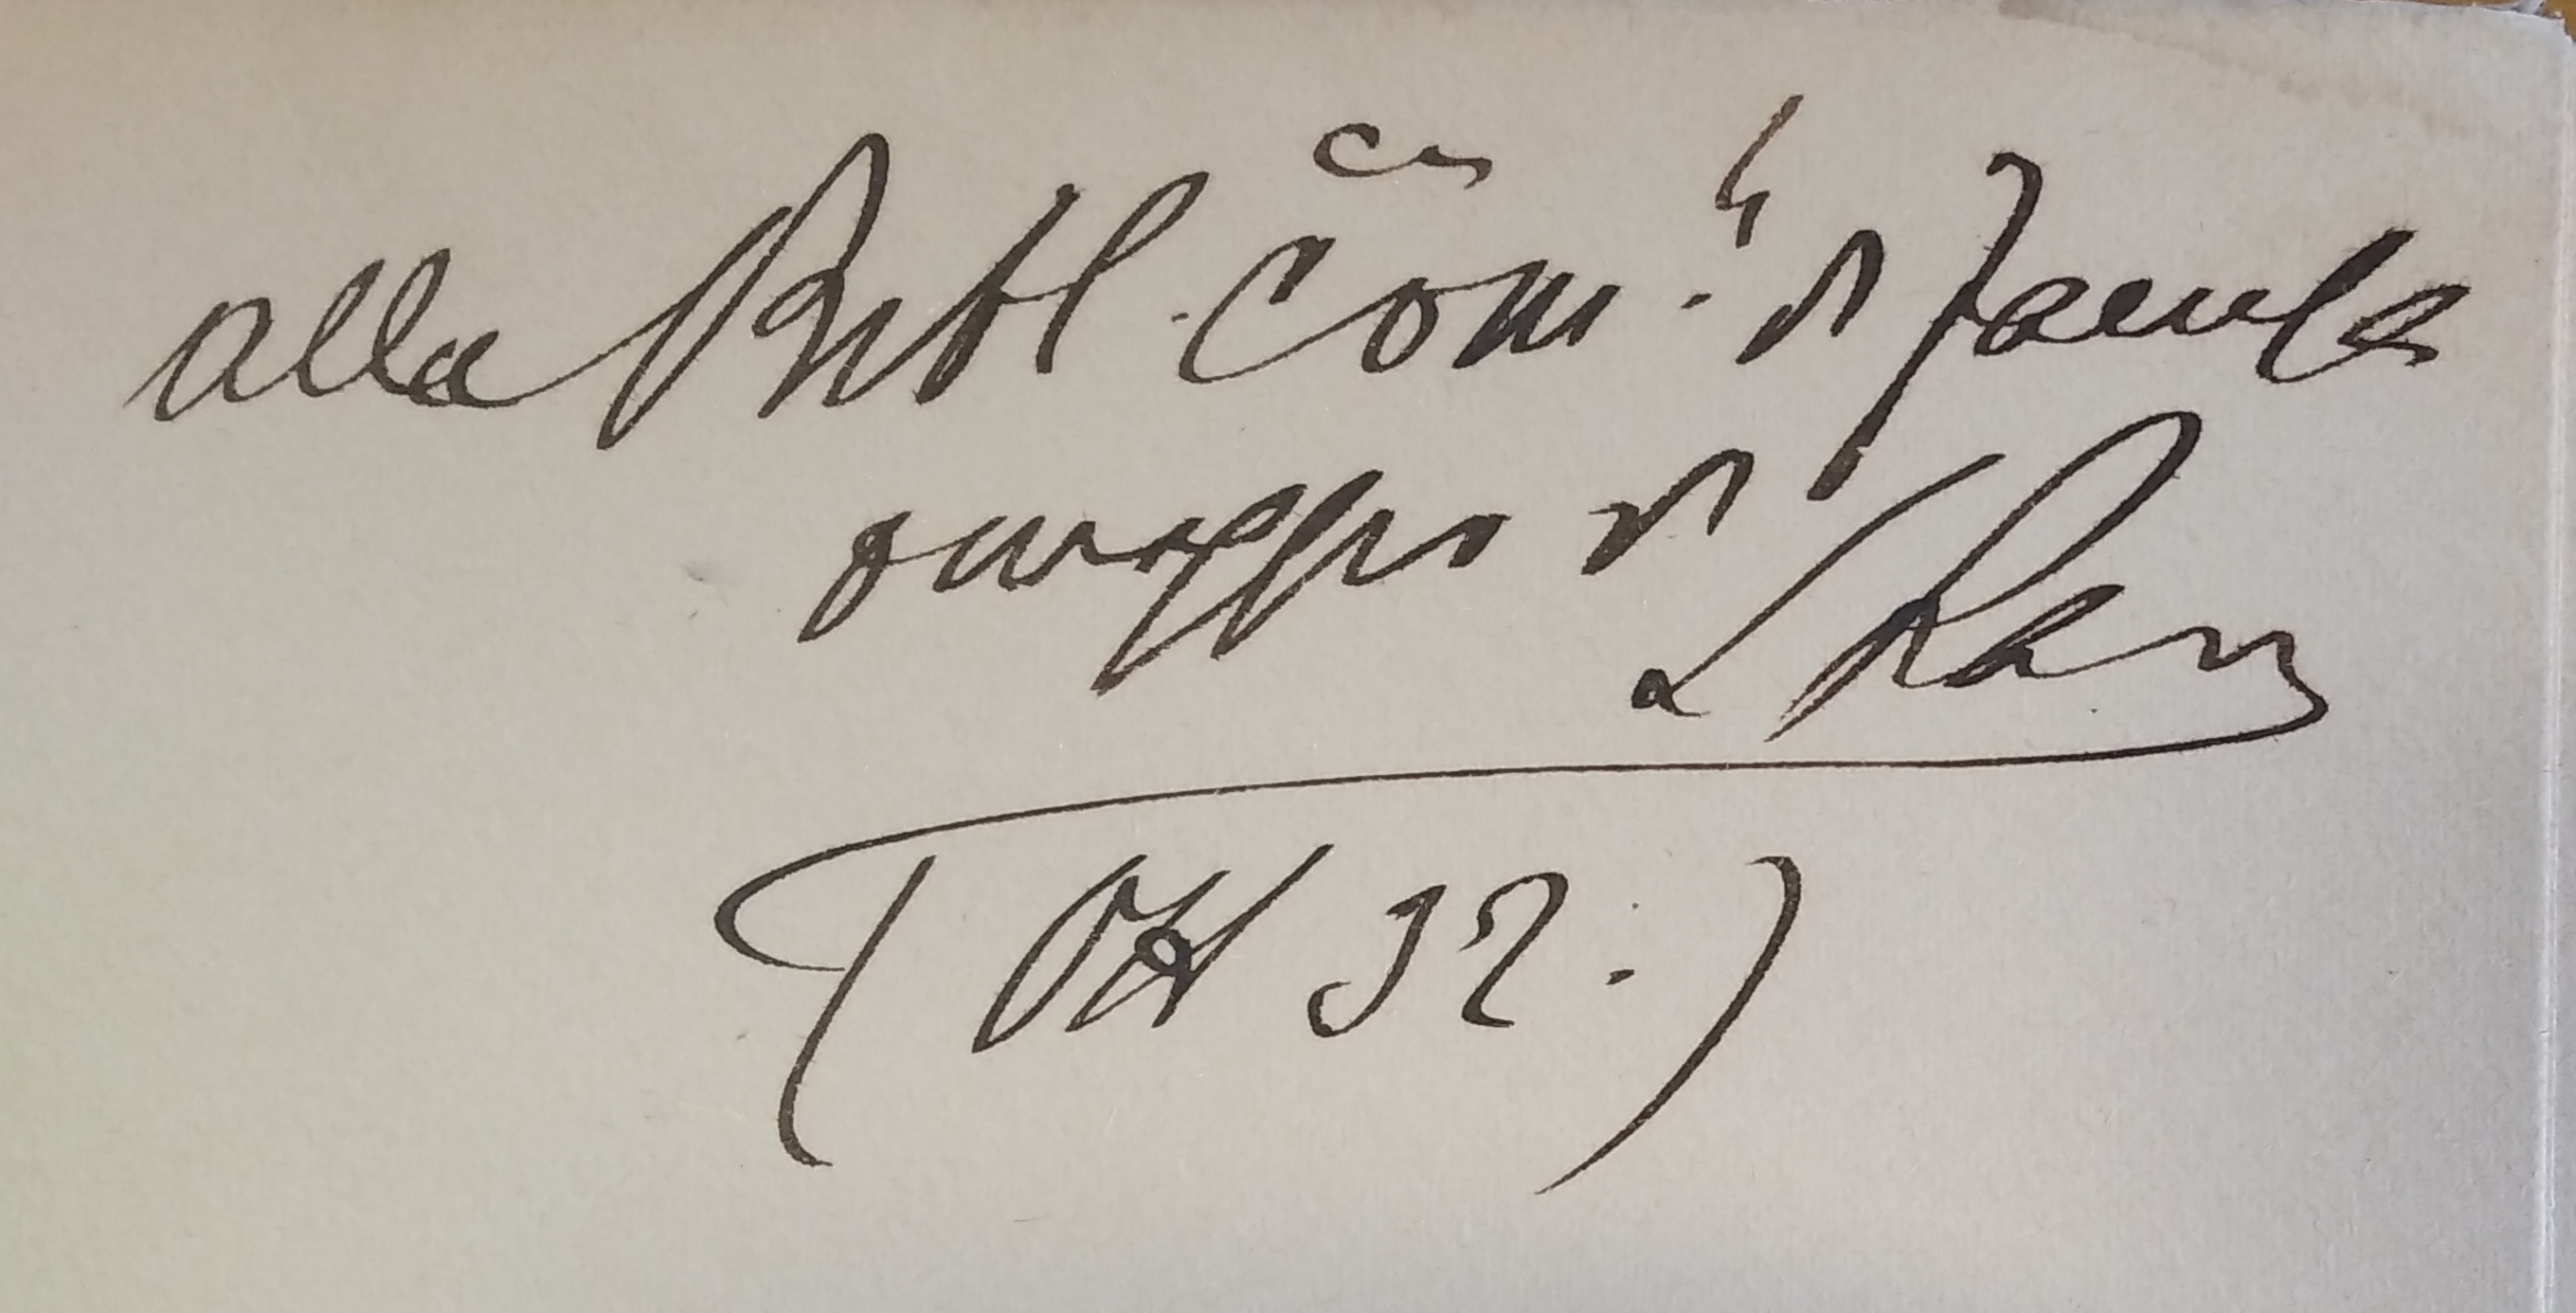 alla Bibl. Com. di Faenza
omaggio di
(Ott 32.)